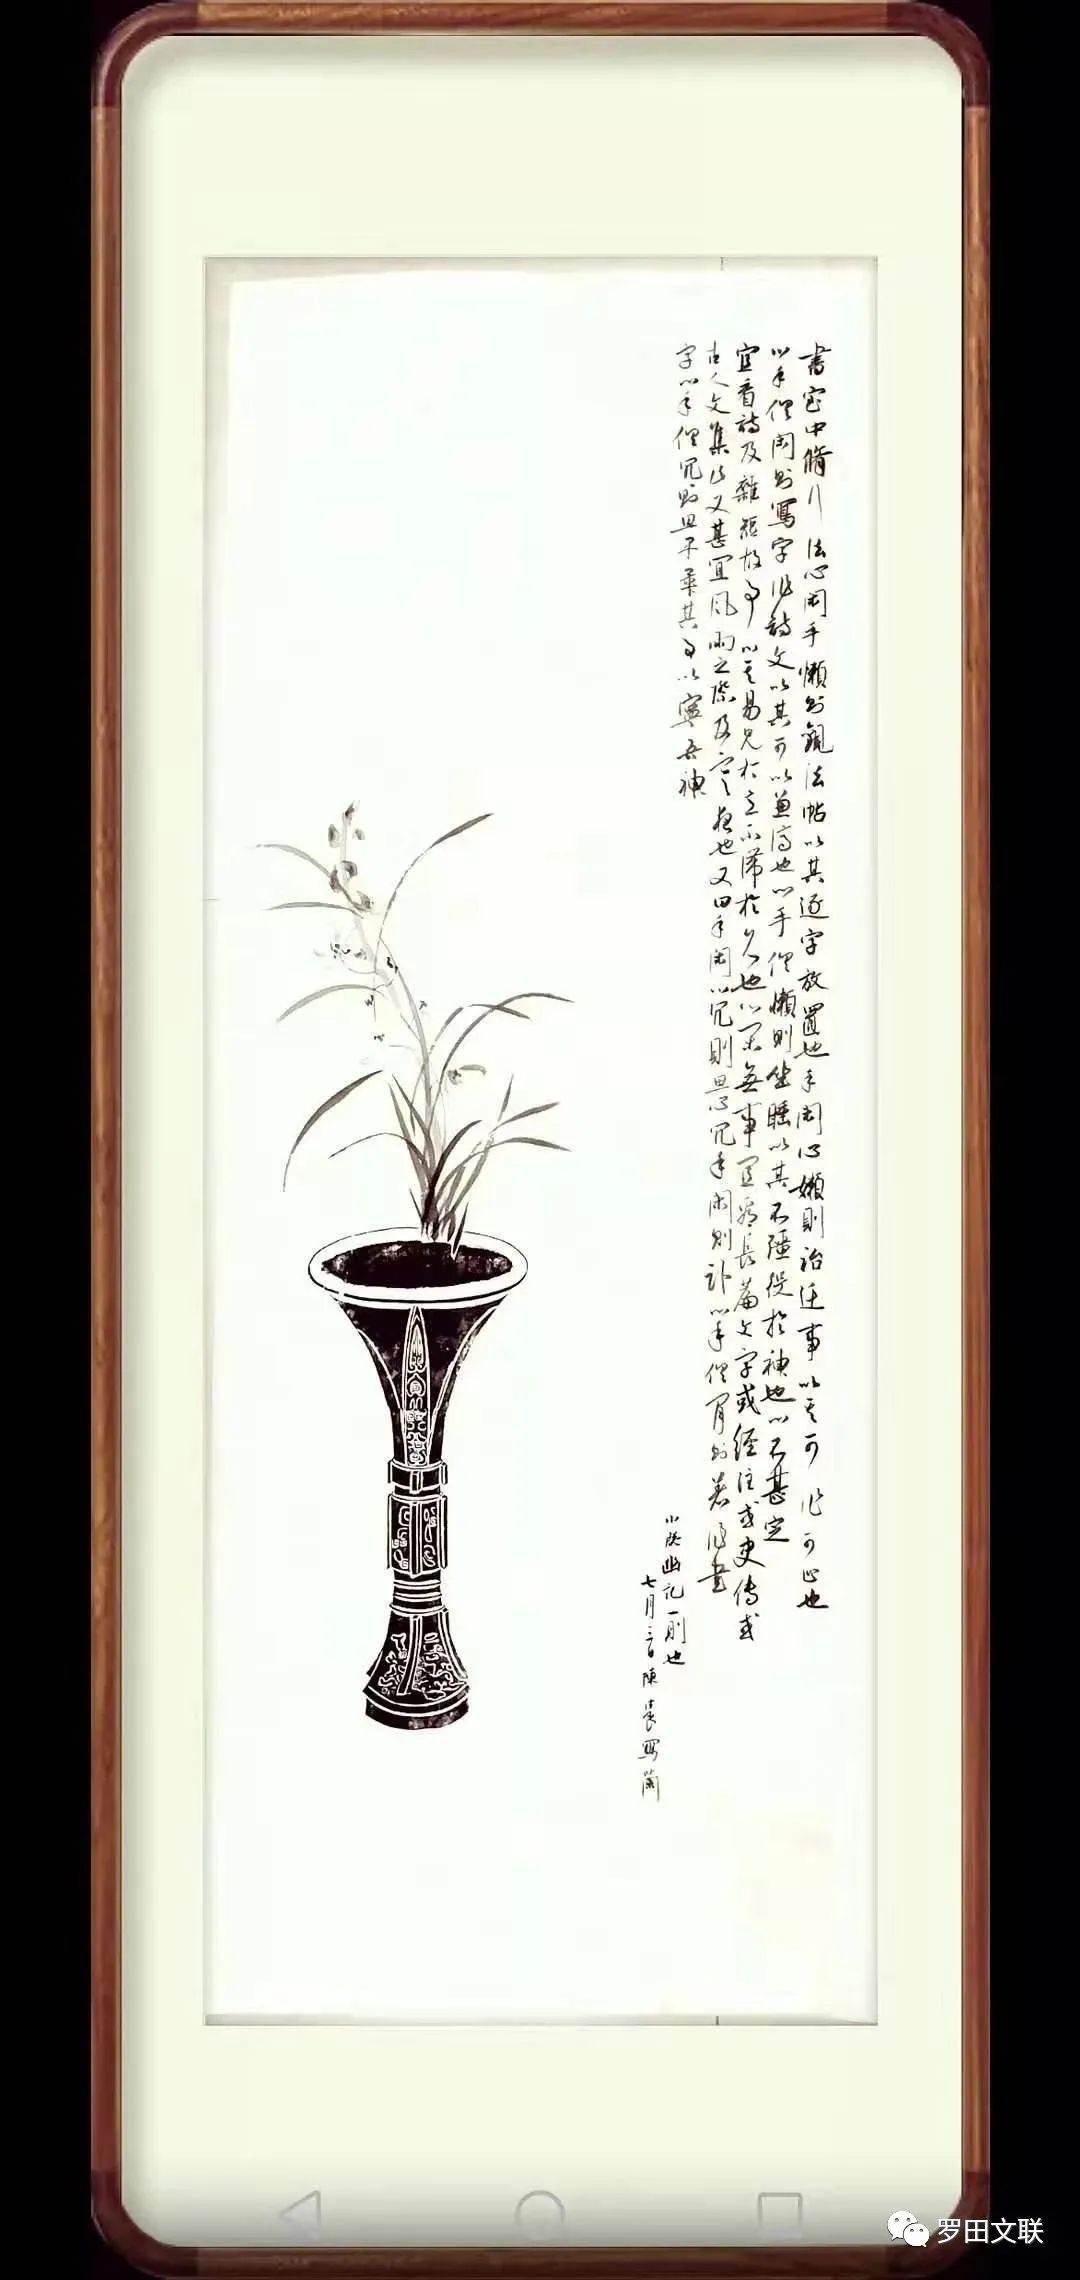 書室中脩行法心閑手懶則觀法帖以其逐字放置也手閑心懶則治迂事以其可作可止也
心手俱閑則寫字作詩文以其可以兼濟也心手俱懶則坐睡以其不強役於神也心不甚定
宜看詩及雜短故事以其易見於意不滯於久也心閑無事宜看長篇文字或經注或史傳或
古人文集此又甚宜風雨之際及寒夜也又曰手閑心冗則思心冗手閑則卧心手俱閑則著作書
字心手俱冗則思早畢其事以寧吾神
小窗幽記一則也
七月三日陳晨寫蘭
罗田文联